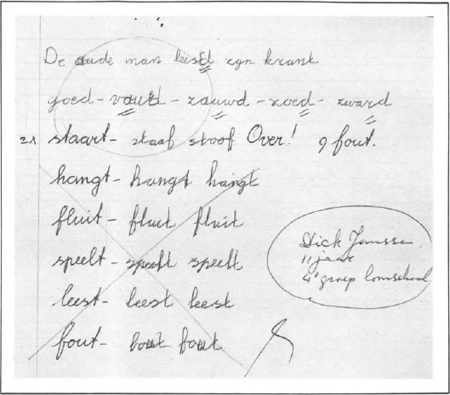 De oude man leesd zyn krant
goed - voud - rauwd - roed - zward
2x staart - staaf stoof Over! 9 fout.
hangt - hangt hangt
fluit - fluit fluit
speelt - speelt speelt
leest - leest leest
fout - bout fout
Dick Janssen
11 jaar
4e groep lomschool